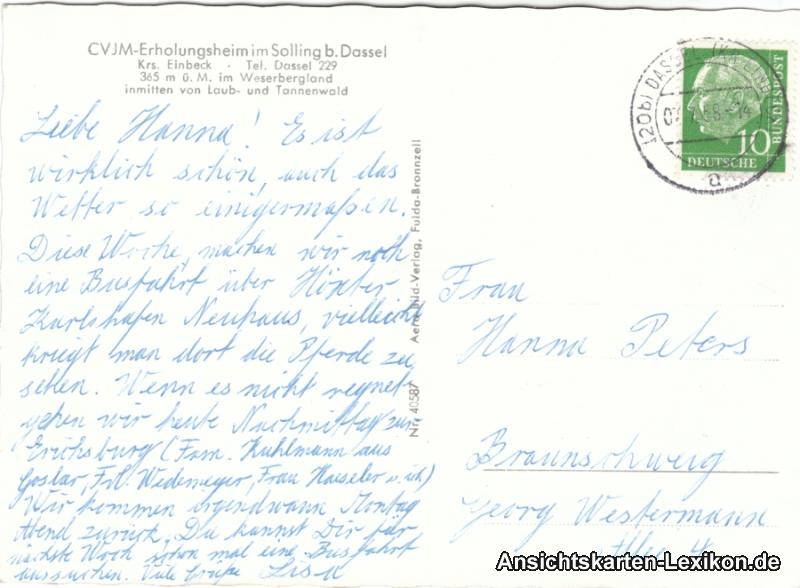 CVJM-Erholungsheim im Solling b. Dassel
Krs. Einbeck · Tel. Dassel 229
365 m ü. M. im Weserbergland
inmitten von Laub- und Tannenwald
Liebe Hanna! Es ist
wirklich schön, auch das
Wetter so einigermaßen.
Diese Woche, machen wir noch
eine Busfahrt über Höxter
Karlshafen Neuhaus, vielleicht
kriegt man dort die Pferde zu
sehen. Wenn es nicht regnet
gehen wir heute Nachmittag zur
Erichsburg (Fam. Kuhlmann aus
Goslar, Frl. Wedemeyer, Frau Haeseler u. ich)
Wir kommen irgendwann Montag
Abend zurück. Du kannst Dir für
nächste Woch schon mal eine Busfahrt
aussuchen. Viele Grüße Lisa
Nr. 40587 Aero-Bild-Verlag, Fulda-Bronnzell
(20b) DASSEL
a
10
DEUTSCHE
BUNDESPOST
Frau
Hanna Peters
Braunschweig
Georg Westermann
Allee 4
Ansichtskarten-Lexikon.de